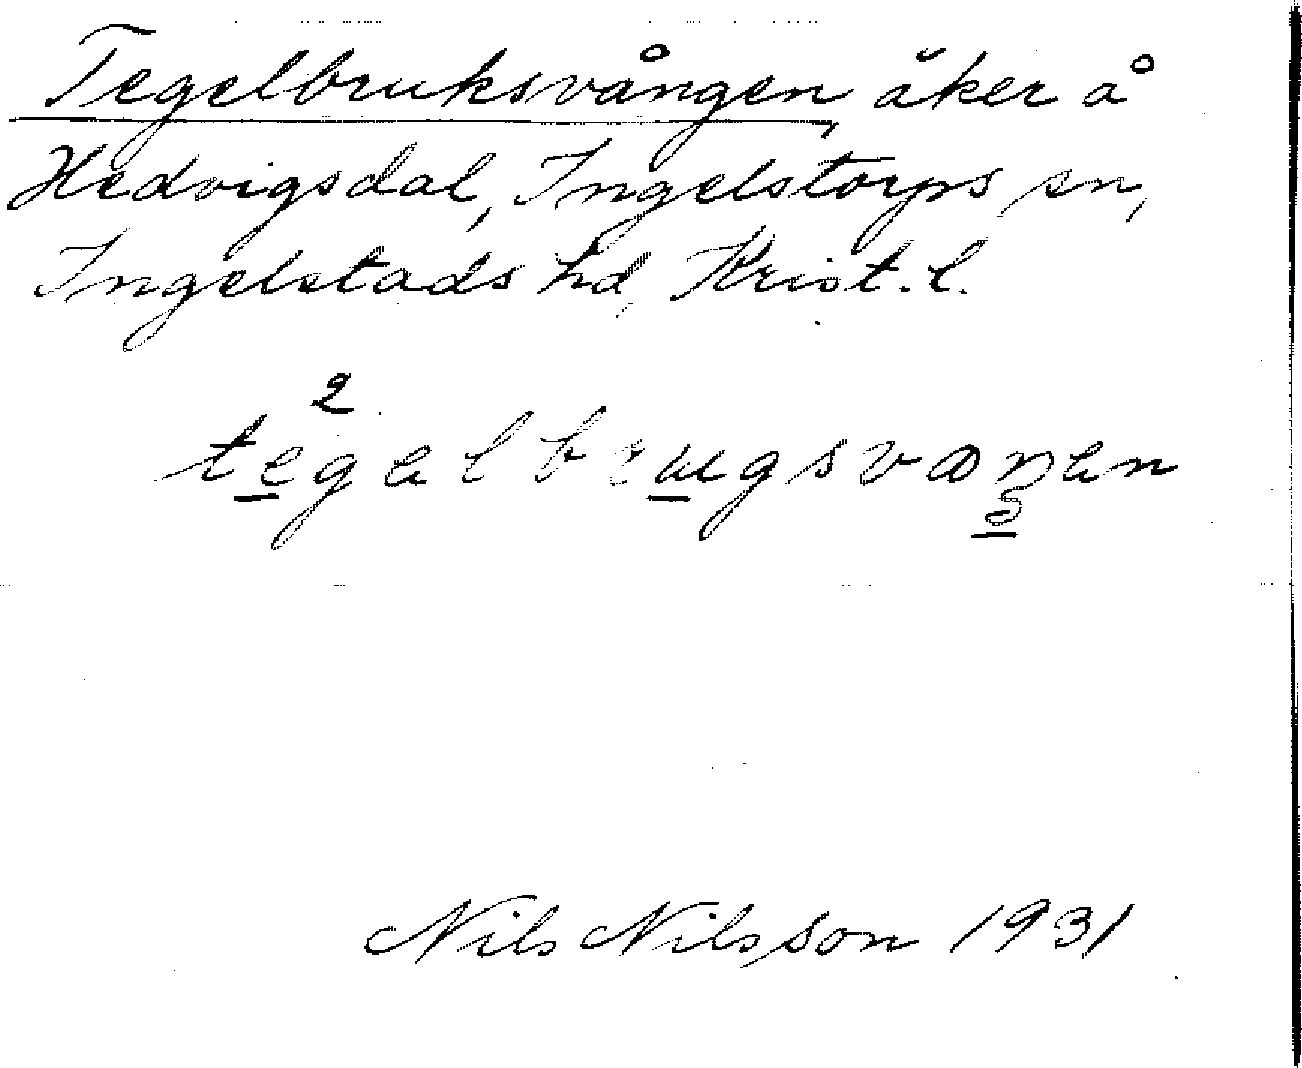 Tegelbruksvången, åker å
Hedvigsdal, Ingelstorps sn,
Ingelstads hd, Krist. l.
2
Nils Nilsson 1931